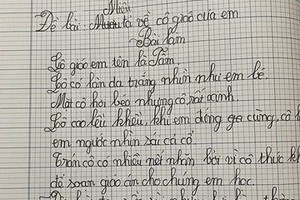 Miêu
Đề bài Mươu tả về cô giáo của em
Bài làm
Cô giáo em tên là Tấm
Cô có làn da trắng nhìn như em bé.
Mặt cô hơi beo nhưng cô rất xinh.
Cô cao lêu khêu, khi em đứng gần cùng, cô
em ngước nhìn sái cả cổ.
Trán cô có nhiều nết nhăn bởi vì cô thức
để soạn giáo án cho chúng em học.